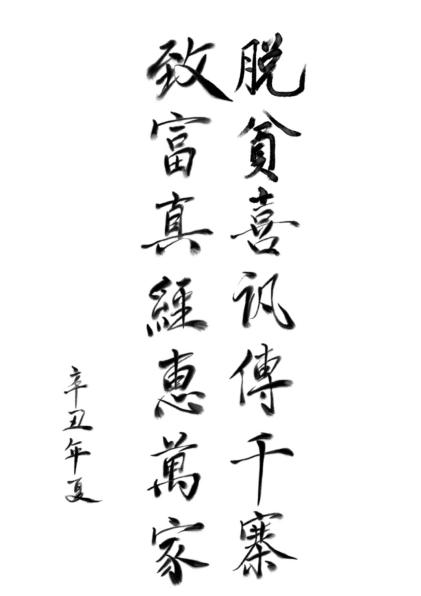 脱貧喜訊傳千寨
致富真經惠萬家
辛丑年夏